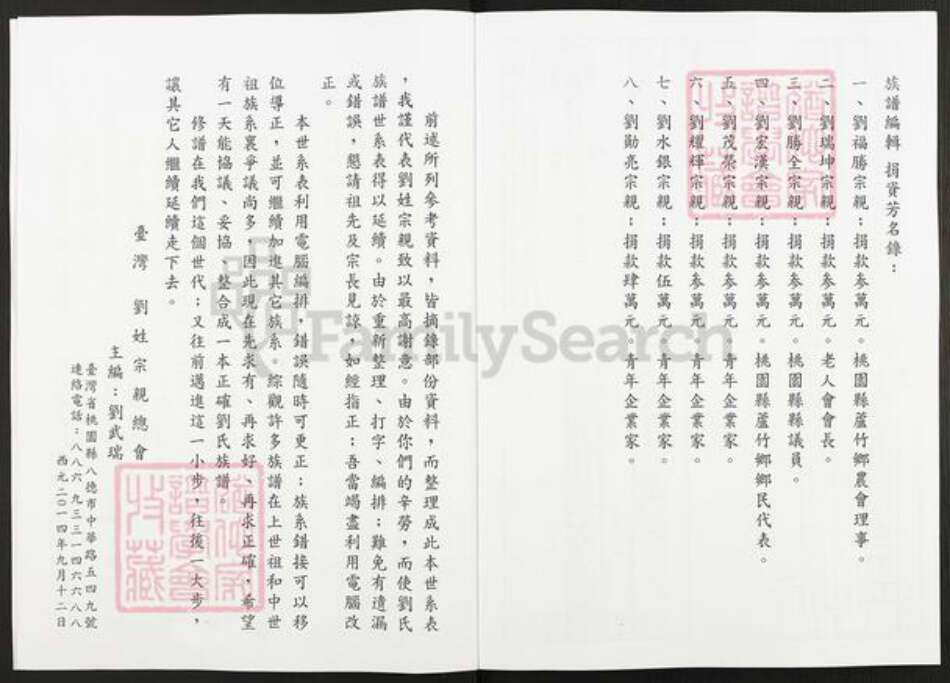 族譜編輯 捐資芳名錄：
一、劉福勝宗親：捐款叁萬元。桃園縣蘆竹鄉農會理事。
二、劉瑞坤宗親：捐款叁萬元。老人會會長。
三、劉勝全宗親：捐款叁萬元。桃園縣縣議員。
四、劉宏漢宗親：捐款叁萬元。桃園縣蘆竹鄉鄉民代表。
五、劉茂榮宗親：捐款叁萬元。青年企業家。
六、劉耀輝宗親：捐款叁萬元。青年企業家。
七、劉水銀宗親：捐款伍萬元。青年企業家。
八、劉勛亮宗親：捐款肆萬元。青年企業家。
前述所列參考資料，皆摘錄部份資料，而整理成此本世系表
，我謹代表劉姓宗親致以最高謝意。由於你們的辛勞，而使劉氏
族譜世系表得以延續。由於重新整理、打字、編排；難免有遺漏
或錯誤，懇請祖先及宗長見諒，如經指正；吾當竭盡利用電腦改
正。
本世系表利用電腦編排，錯誤隨時可更正；族系錯接可以移
位導正，並可繼續加進其它族系。綜觀許多族譜在上世祖和中世
祖族系裏爭議尚多，因此現在先求有、再求好、再求正確，希望
有一天能協議、妥協，整合成一本正確劉氏族譜。
修譜在我們這個世代；又往前邁進這一小步，往後一大步，
讓其它人繼續延續走下去。
臺灣 劉姓宗親總會
主編：劉武瑞
臺灣省桃園縣八德市中華路五四九號
連絡電話：八八六 九三三一四六六八八
西元二０一四年九月十二日
FamilySearch